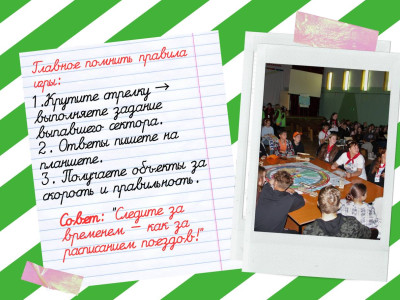 Главное помнить правила
игры:
1.Крутите стрелку →
выполняете задание
выпавшего сектора.
2. Ответы пишете на
планшете.
3. Получаете объекты за
скорость и правильность.
Совет: "Следите за
временем – как за
расписанием поездов!"